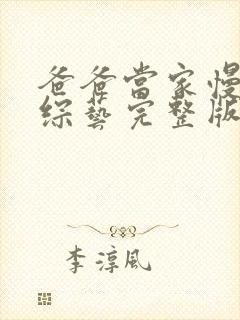 爸爸當家慢
綜藝完整版
李淳風